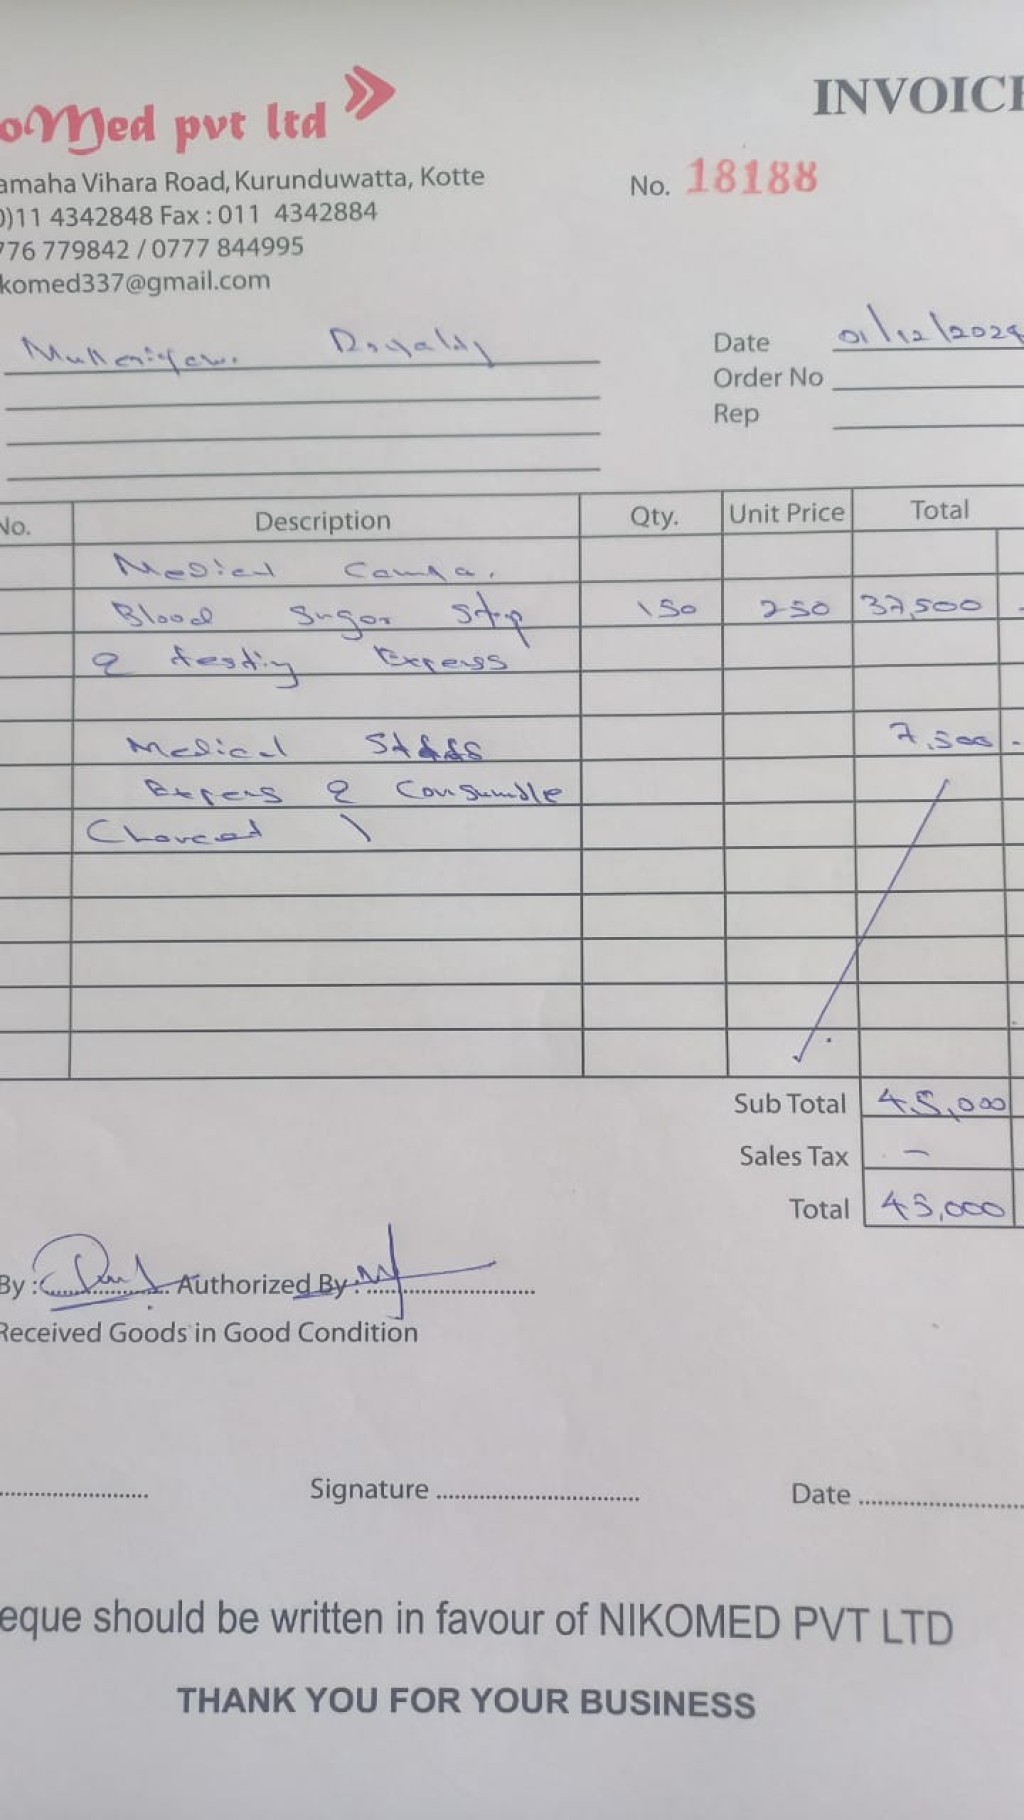 oMed pvt ltd
INVOICE
amaha Vihara Road, Kurunduwatta, Kotte
No. 18188
0)11 4342848 Fax : 011 4342884
776 779842 / 0777 844995
komed337@gmail.com
Date 01/12/2024
Order No
Rep
No. Description Qty. Unit Price Total
Medical
Blood Sugar Stip 150 250 37,500
& testing Expenss
Medical Staffs 7,500
Expens & Consumdle
Sub Total 45,000
Sales Tax -
Total 45,000
By : Authorized By :
Received Goods in Good Condition
Signature Date
eque should be written in favour of NIKOMED PVT LTD
THANK YOU FOR YOUR BUSINESS